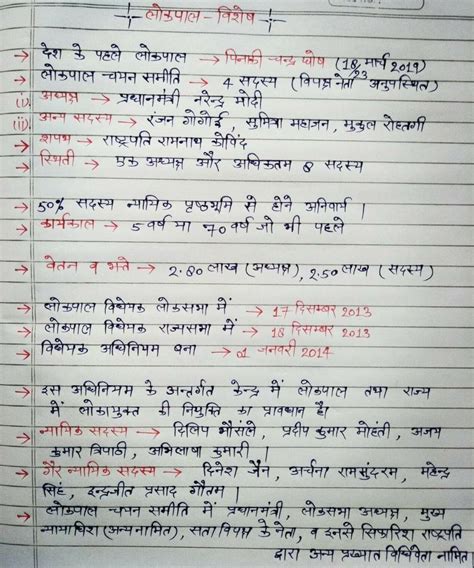 लोकपाल - विशेष
→ देश के पहले लोकपाल → पिनाकी चन्द्र घोष (18 मार्च 2019)
→ लोकपाल चयन समीति → 4 सदस्य (विपक्ष नेता अनुपस्थित)
(i) अध्यक्ष → प्रधानमंत्री नरेन्द्र मोदी
(ii) अन्य सदस्य → रंजन गोगोई, सुमित्रा महाजन, मुकुल रोहतगी
→ शपथ → राष्ट्रपति रामनाथ कोविंद
→ स्थिती → एक अध्यक्ष और अधिकतम 8 सदस्य
→ 50% सदस्य न्यायिक पृष्ठभूमि से होने अनिवार्य।
→ कार्यकाल → 5 वर्ष या 70 वर्ष जो भी पहले
→ वेतन व भत्ते → 2.80 लाख (अध्यक्ष), 2.50 लाख (सदस्य)
→ लोकपाल विधेयक लोकसभा में → 17 दिसम्बर 2013
→ लोकपाल विधेयक राज्यसभा में → 18 दिसम्बर 2013
→ विधेयक अधिनियम बना → 01 जनवरी 2014
→ इस अधिनियम के अन्तर्गत केन्द्र में लोकपाल तथा राज्य
में लोकायुक्त की नियुक्ति का प्रावधान है।
→ न्यायिक सदस्य → दिलिप भौंसले, प्रदीप कुमार मोहंती, अजय
कुमार त्रिपाठी, अभिलाषा कुमारी।
→ गैर न्यायिक सदस्य → दिनेश जैन, अर्चना रामसुंदरम, महेन्द्र
सिंह, इन्द्रजीत प्रसाद गौतम।
→ लोकपाल चयन समिति में प्रधानमंत्री, लोकसभा अध्यक्ष, मुख्य
न्यायाधिश (अन्यनामित), सता विपक्ष के नेता, व इनसे सिफारिश राष्ट्रपति
द्वारा अन्य प्रख्यात विधिवेता नामित